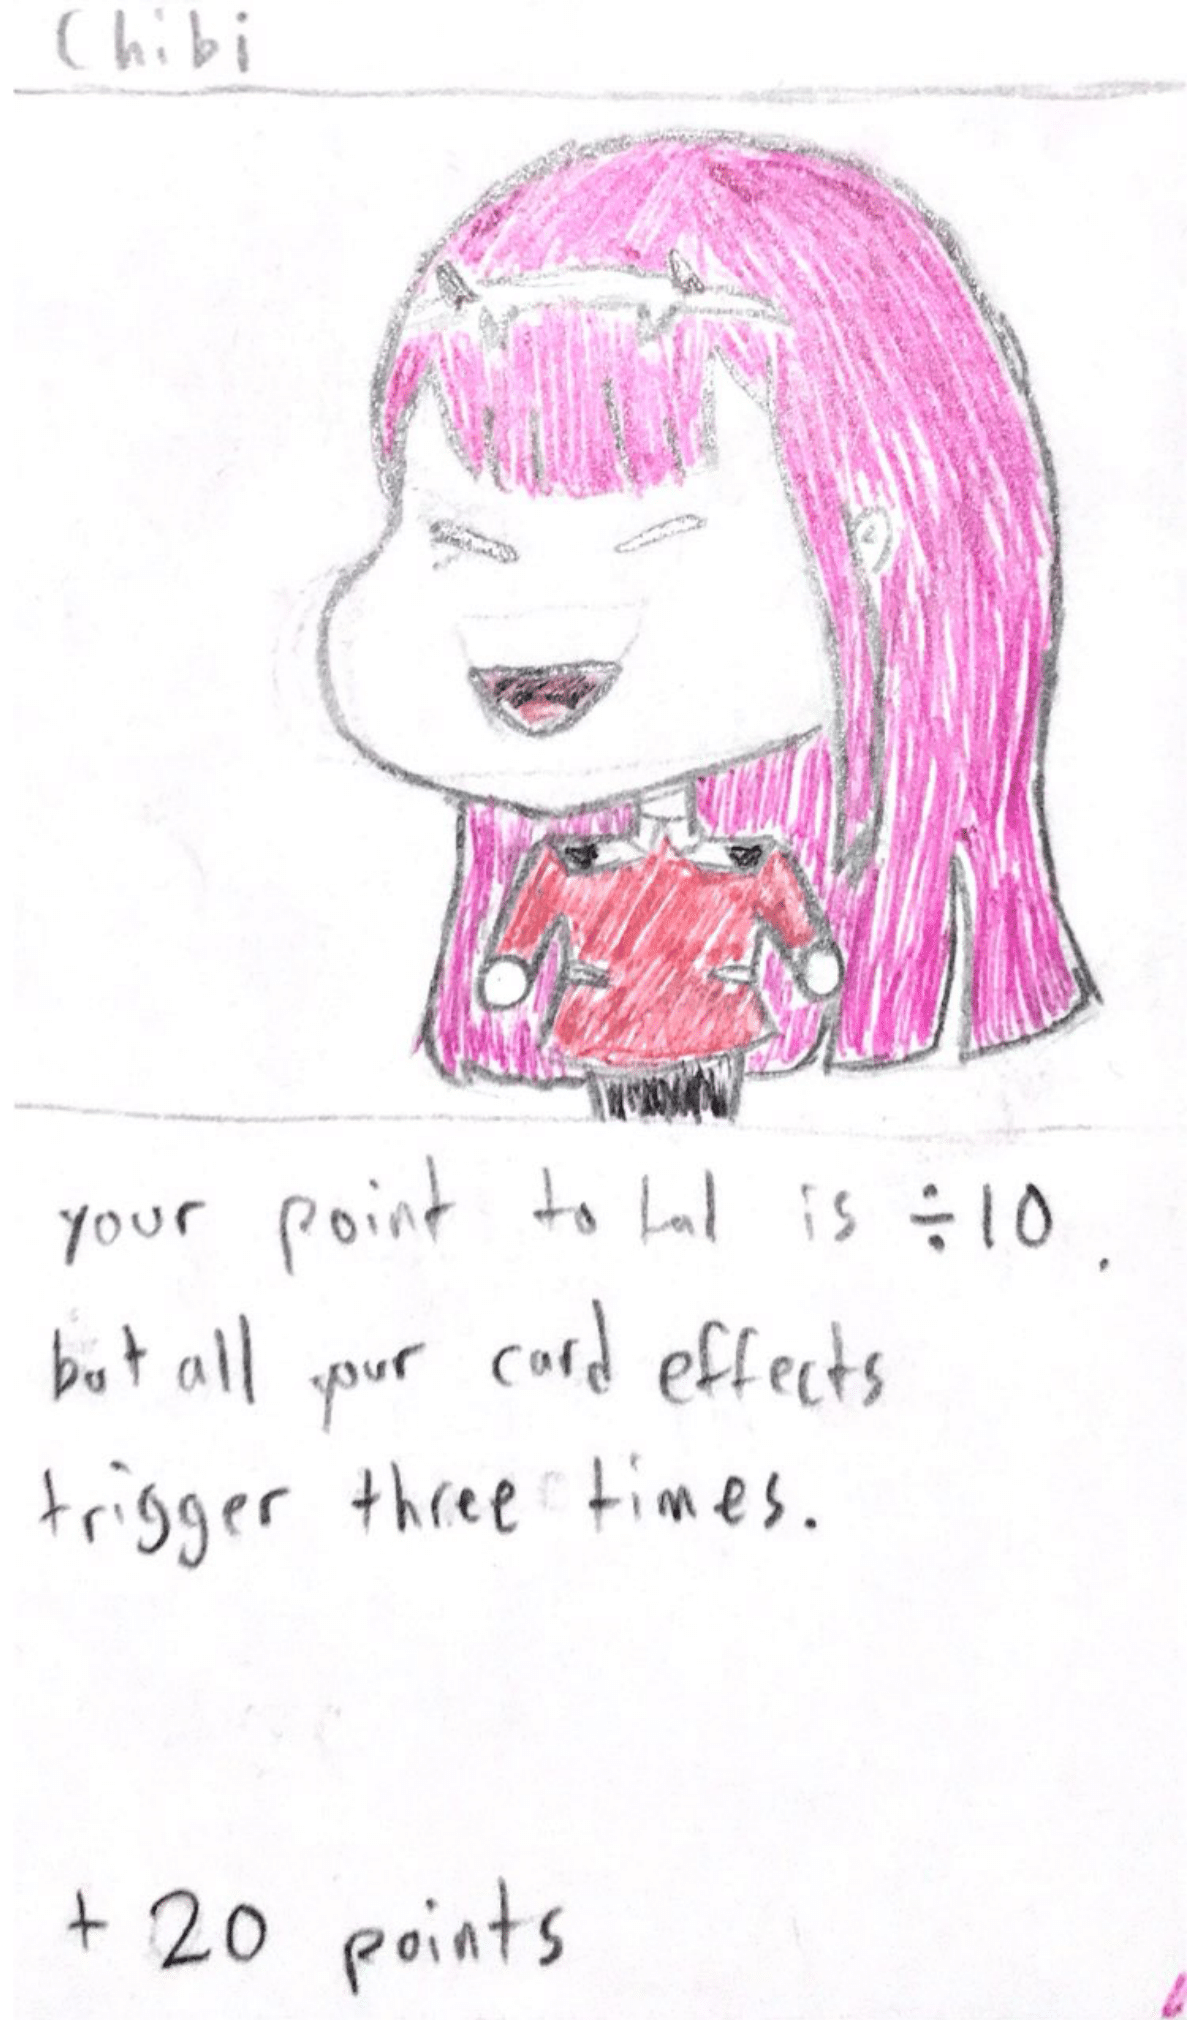 Chibi
your point total is ÷10.
but all your card effects
trigger three times.
+ 20 points